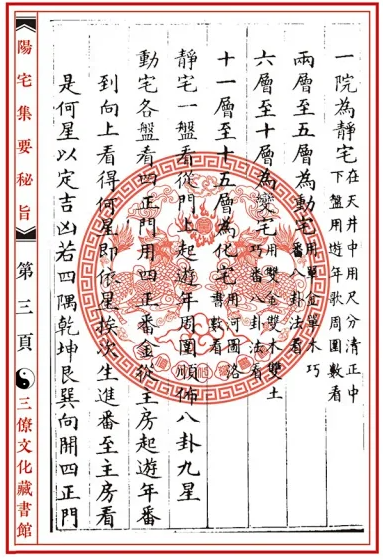 一院為靜宅在天井中用尺分清正中
下盤用遊年歌周圍數看
兩層至五層為動宅用單金單木巧
番八卦法看
六層至十層為變宅用雙金雙木雙土
巧番八卦法看
十一層至十五層為化宅用河圖洛
書數看
靜宅一盤看從門上起遊年周圍順佈八卦九星
動宅各盤看四正門用四正番金從主房起遊年番
到向上看得何星即依星挨次生進番至主房看
是何星以定吉凶若四隅乾坤艮巽向開四正門
【陽宅集要秘旨】
第三頁
三僚文化藏書館